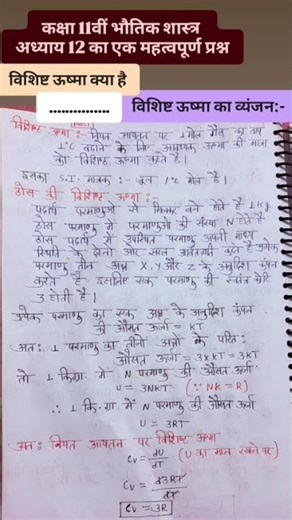 कक्षा 11वीं भौतिक शास्त्र
अध्याय 12 का एक महत्वपूर्ण प्रश्न
विशिष्ट ऊष्मा क्या है
...............
विशिष्ट ऊष्मा का व्यंजन:-
विशिष्ट ऊष्मा :- नियत आयतन पर 1 मोल गैस का ताप
1°C बढ़ाने के लिए आवश्यक ऊष्मा की मात्रा
को विशिष्ट ऊष्मा कहते है।
इसका S.I. मात्रक :- जूल / °C मोल है।
ठोस की विशिष्ट ऊष्मा :-
पदार्थ परमाणुओं से मिलकर बने होते है 1 kg
ठोस परमाणु में परमाणुओं की संख्या N होते है
ठोस पदार्थ में उपस्थित परमाणु अपनी माध्य
स्थिति के दोनों ओर सरल आवर्तगति करते है प्रत्येक
परमाणु तीन अक्ष X, Y और Z के अनुदिश कंपन
करते है इसलिए एक परमाणु की स्वतंत्र कोटि
3 होती है।
प्रत्येक परमाणु का एक अक्ष के अनुदिश कंपन
की औसत ऊर्जा = KT
अतः 1 परमाणु का तीनों अक्षों के परितः
औसत ऊर्जा = 3 x KT = 3KT
तो 1 किग्रा. में N परमाणु की औसत ऊर्जा
U = 3NKT (∵ NK = R)
∴ 1 कि.ग्रा. में N परमाणु की औसत ऊर्जा
U = 3RT
अतः नियत आयतन पर विशिष्ट ऊष्मा
Cv = dU/dT (U का मान रखने पर)
Cv = d3RT/dT
Cv = 3R